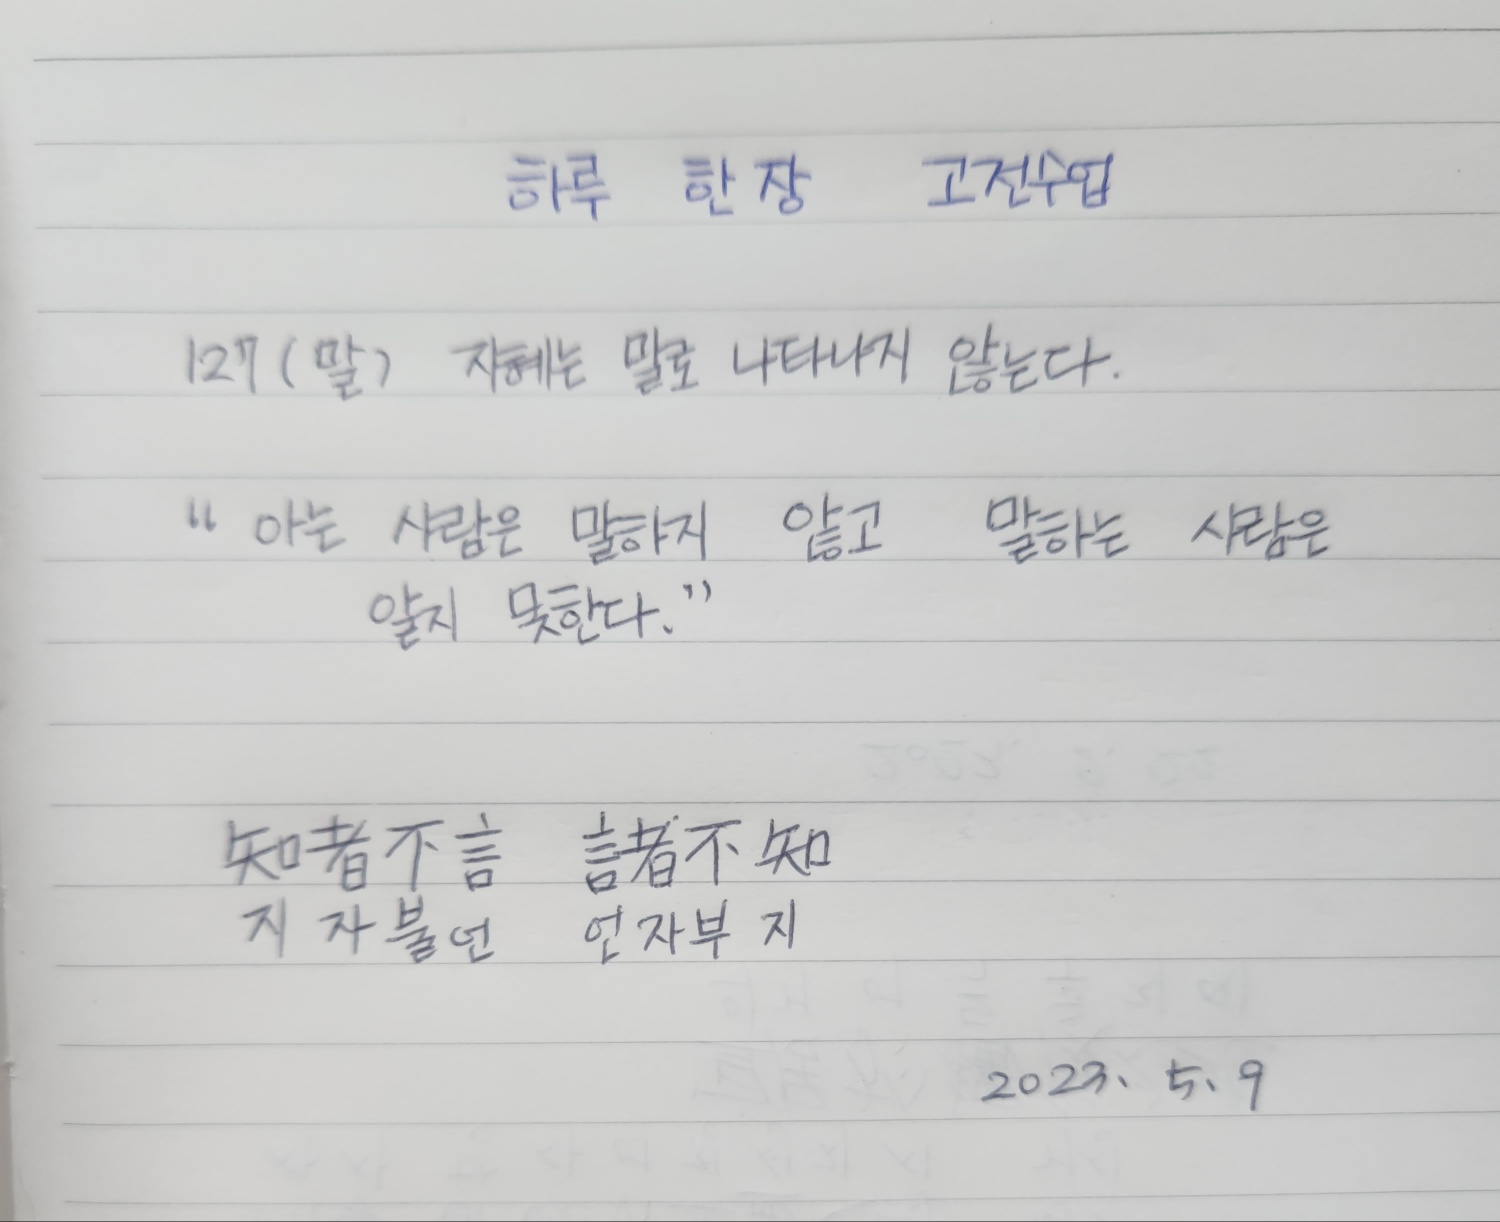 하루 한 장 고전수업
127 (말) 지혜는 말로 나타나지 않는다.
“ 아는 사람은 말하지 않고 말하는 사람은
알지 못한다.”
知者不言 言者不知
지자불언 언자부지
2023. 5. 9